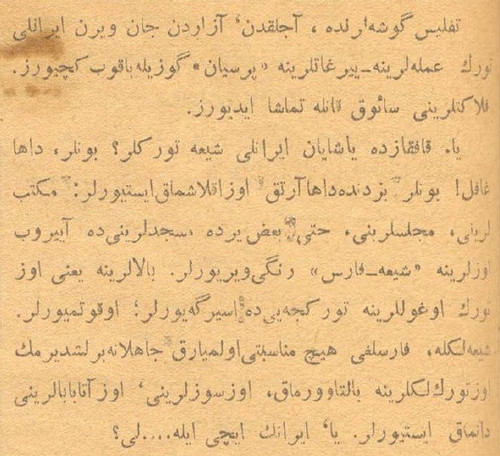 تفلیس گوشه‌لرنده ، آجلقدن٬ آزاردن جان ویرن ایرانلی
تورك عمله‌لرینه_پیرغاتلرینه «پرسیان» گوزیله باقوب كچیورز.
فلاكتلرینی سائوق قانله تماشا ایدیورز.
یا. قافقازده یاشایان ایرانلی شیعه توركلر؟ بونلر، داها
غافل! بونلر بزدنده‌داها آرتق اوزاقلاشماق‌ایستیورلر: مكتب
لرینی، مجلسلرینی، حتی بعض یرده مسجدلرینی‌ده آییروب
اوزلرینه «شیعه_فارس» رنگی‌ویریورلر. بالالرینه یعنی اوز
تورك اوغوللرینه توركجه‌یی‌ده اسیرگه‌یورلر؛ اوقوتمیورلر.
شیعه‌لكله، فارسلغی هیچ مناسبتی‌اولمیارق جاهلانه‌برلشدیرمك
اوزتورك‌لكلرینه بالتاوورماق، اوزسوزلرینی٬ اوز آتابابالرینی
دانماق ایستیورلر. یا٬ ایرانك ایچی ایله....لی؟